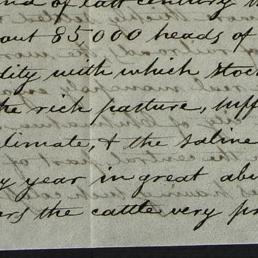 nd of last century
out 85000 heads of
dity with which stock
he rich pasture, suff
climate, & the saline
y year in great abu
ers the cattle very pr